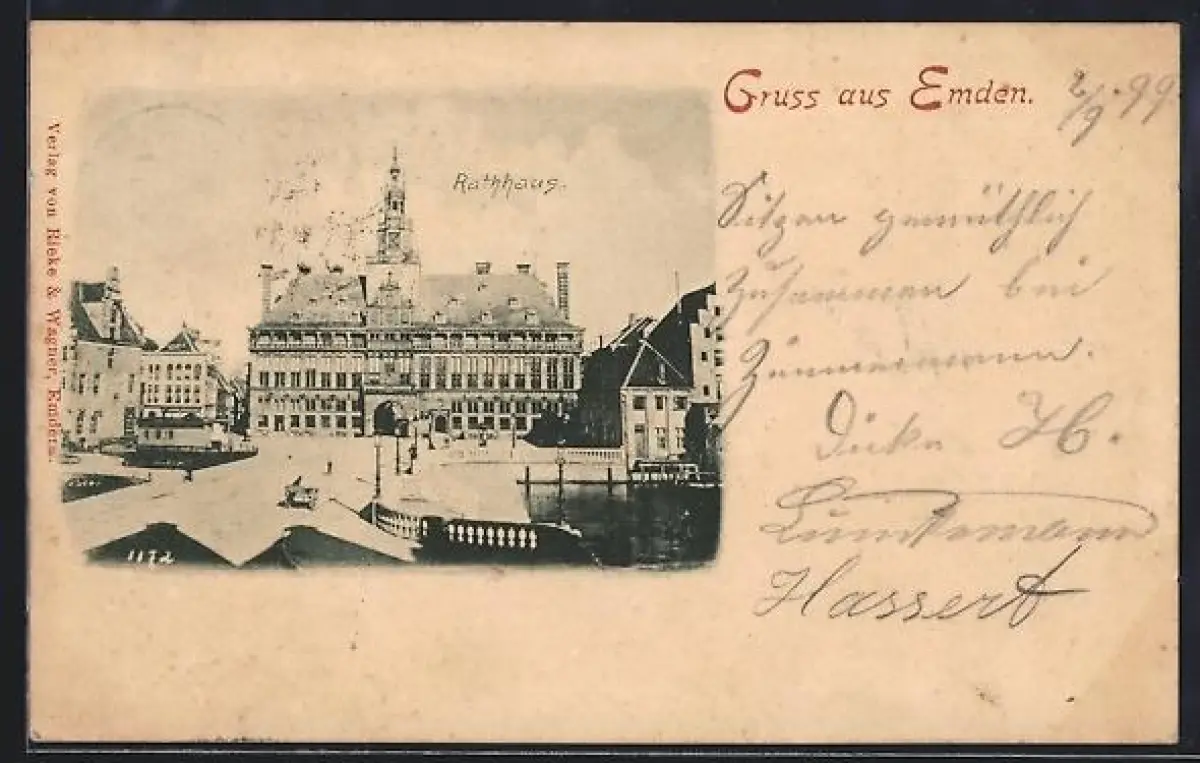 Gruss aus Emden.
2/9. 99
Rathhaus.
Sitzen gemüthlich
zusammen bei
Zimmermann.
H.
Hassert
1172
Verlag von Rieke & Wagner, Emden.